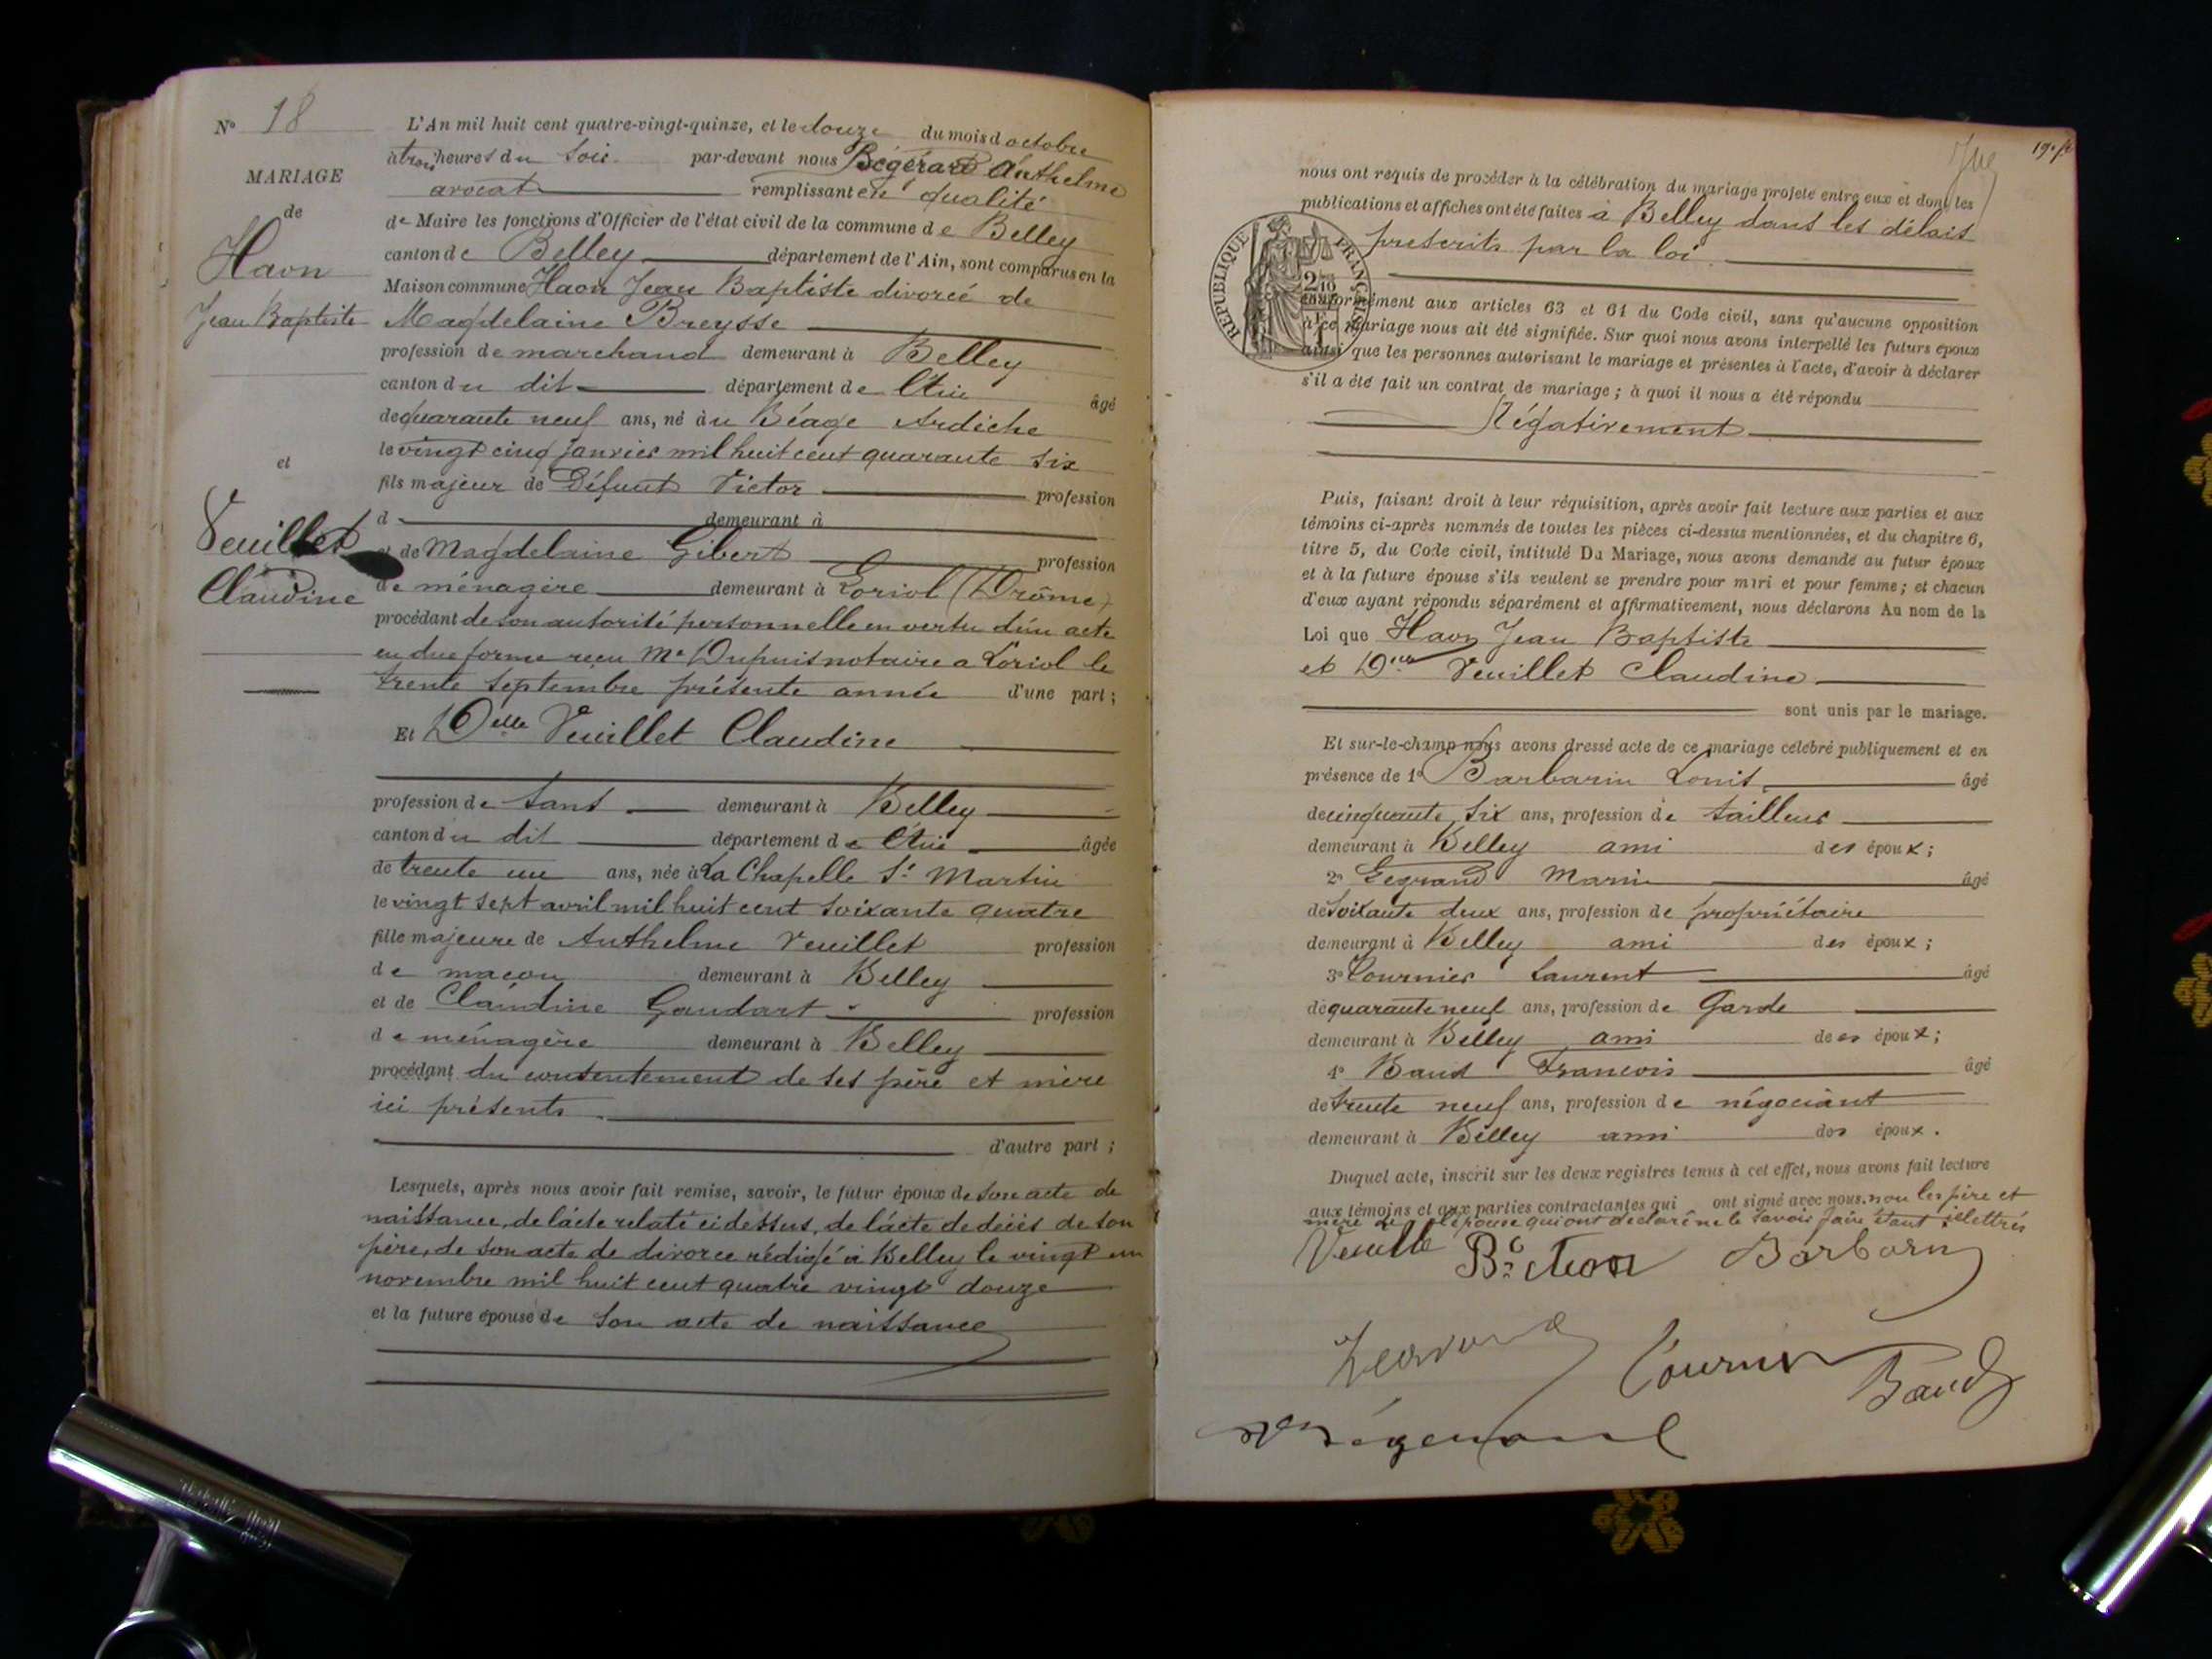 N° 18
MARIAGE
de
Haon
Jean Baptiste
et
Veuillet
Claudine
L'An mil huit cent quatre-vingt-quinze, et le douze du mois d octobre
à trois heures du soir par-devant nous Bégérard Anthelme
avocat remplissant en qualité
de Maire les fonctions d'Officier de l'état civil de la commune de Belley
canton de Belley département de l'Ain, sont comparus en la
Maison commune Haon Jean Baptiste divorcé de
Magdelaine Breysse
profession de marchand demeurant à Belley
canton du dit département de l'Ain âgé
de quarante neuf ans, né à u Béage Ardèche
le vingt cinq janvier mil huit cent quarante six
fils majeur de Défunt Victor profession
d demeurant à
et de Magdelaine Gibert profession
de ménagère demeurant à Loriol (Drôme)
procédant de son autorité personnelle en vertu d'un acte
en due forme reçu Me Dupuis notaire a Loriol le
trente septembre présente année d'une part ;
Et Delle Veuillet Claudine
profession de sans demeurant à Belley
canton du dit département de l'Ain âgée
de trente un ans, née à La Chapelle St Martin
le vingt sept avril mil huit cent soixante quatre
fille majeure de Anthelme Veuillet profession
de maçon demeurant à Belley
et de Claudine Gaudart profession
de ménagère demeurant à Belley
procédant du consentement de ses père et mère
ici présents
d'autre part ;
Lesquels, après nous avoir fait remise, savoir, le futur époux de son acte de
naissance, de l'acte relaté ci dessus, de l'acte de décès de son
père, de son acte de divorce rédigé à Belley le vingt un
novembre mil huit cent quatre vingt douze
et la future épouse de son acte de naissance
nous ont requis de procéder à la célébration du mariage projeté entre eux et dont les
publications et affiches ont été faites à Belley dans les délais
prescrits par la loi
RÉPUBLIQUE FRANÇAISE
conformément aux articles 63 et 64 du Code civil, sans qu'aucune opposition
à ce mariage nous ait été signifiée. Sur quoi nous avons interpellé les futurs époux
ainsi que les personnes autorisant le mariage et présentes à l'acte, d'avoir à déclarer
s'il a été fait un contrat de mariage ; à quoi il nous a été répondu
Négativement
Puis, faisant droit à leur réquisition, après avoir fait lecture aux parties et aux
témoins ci-après nommés de toutes les pièces ci-dessus mentionnées, et du chapitre 6,
titre 5, du Code civil, intitulé Du Mariage, nous avons demandé au futur époux
et à la future épouse s'ils veulent se prendre pour mari et pour femme ; et chacun
d'eux ayant répondu séparément et affirmativement, nous déclarons Au nom de la
Loi que Haon Jean Baptiste
et Delle Veuillet Claudine
sont unis par le mariage.
Et sur-le-champ nous avons dressé acte de ce mariage célébré publiquement et en
présence de 1° Barbarin Louis âgé
de cinquante six ans, profession de tailleur
demeurant à Belley ami des époux ;
2° Legrand Marin âgé
de soixante deux ans, profession de propriétaire
demeurant à Belley ami des époux ;
3° Cournier Laurent âgé
de quarante neuf ans, profession de Garde
demeurant à Belley ami des époux ;
4° Baud François âgé
de trente neuf ans, profession de négociant
demeurant à Belley ami des époux.
Duquel acte, inscrit sur les deux registres tenus à cet effet, nous avons fait lecture
aux témoins et aux parties contractantes qui ont signé avec nous. non les père et
mère de l'épouse qui ont déclaré ne le savoir faire étant illettrés
Barbarin
Cournier
Baud